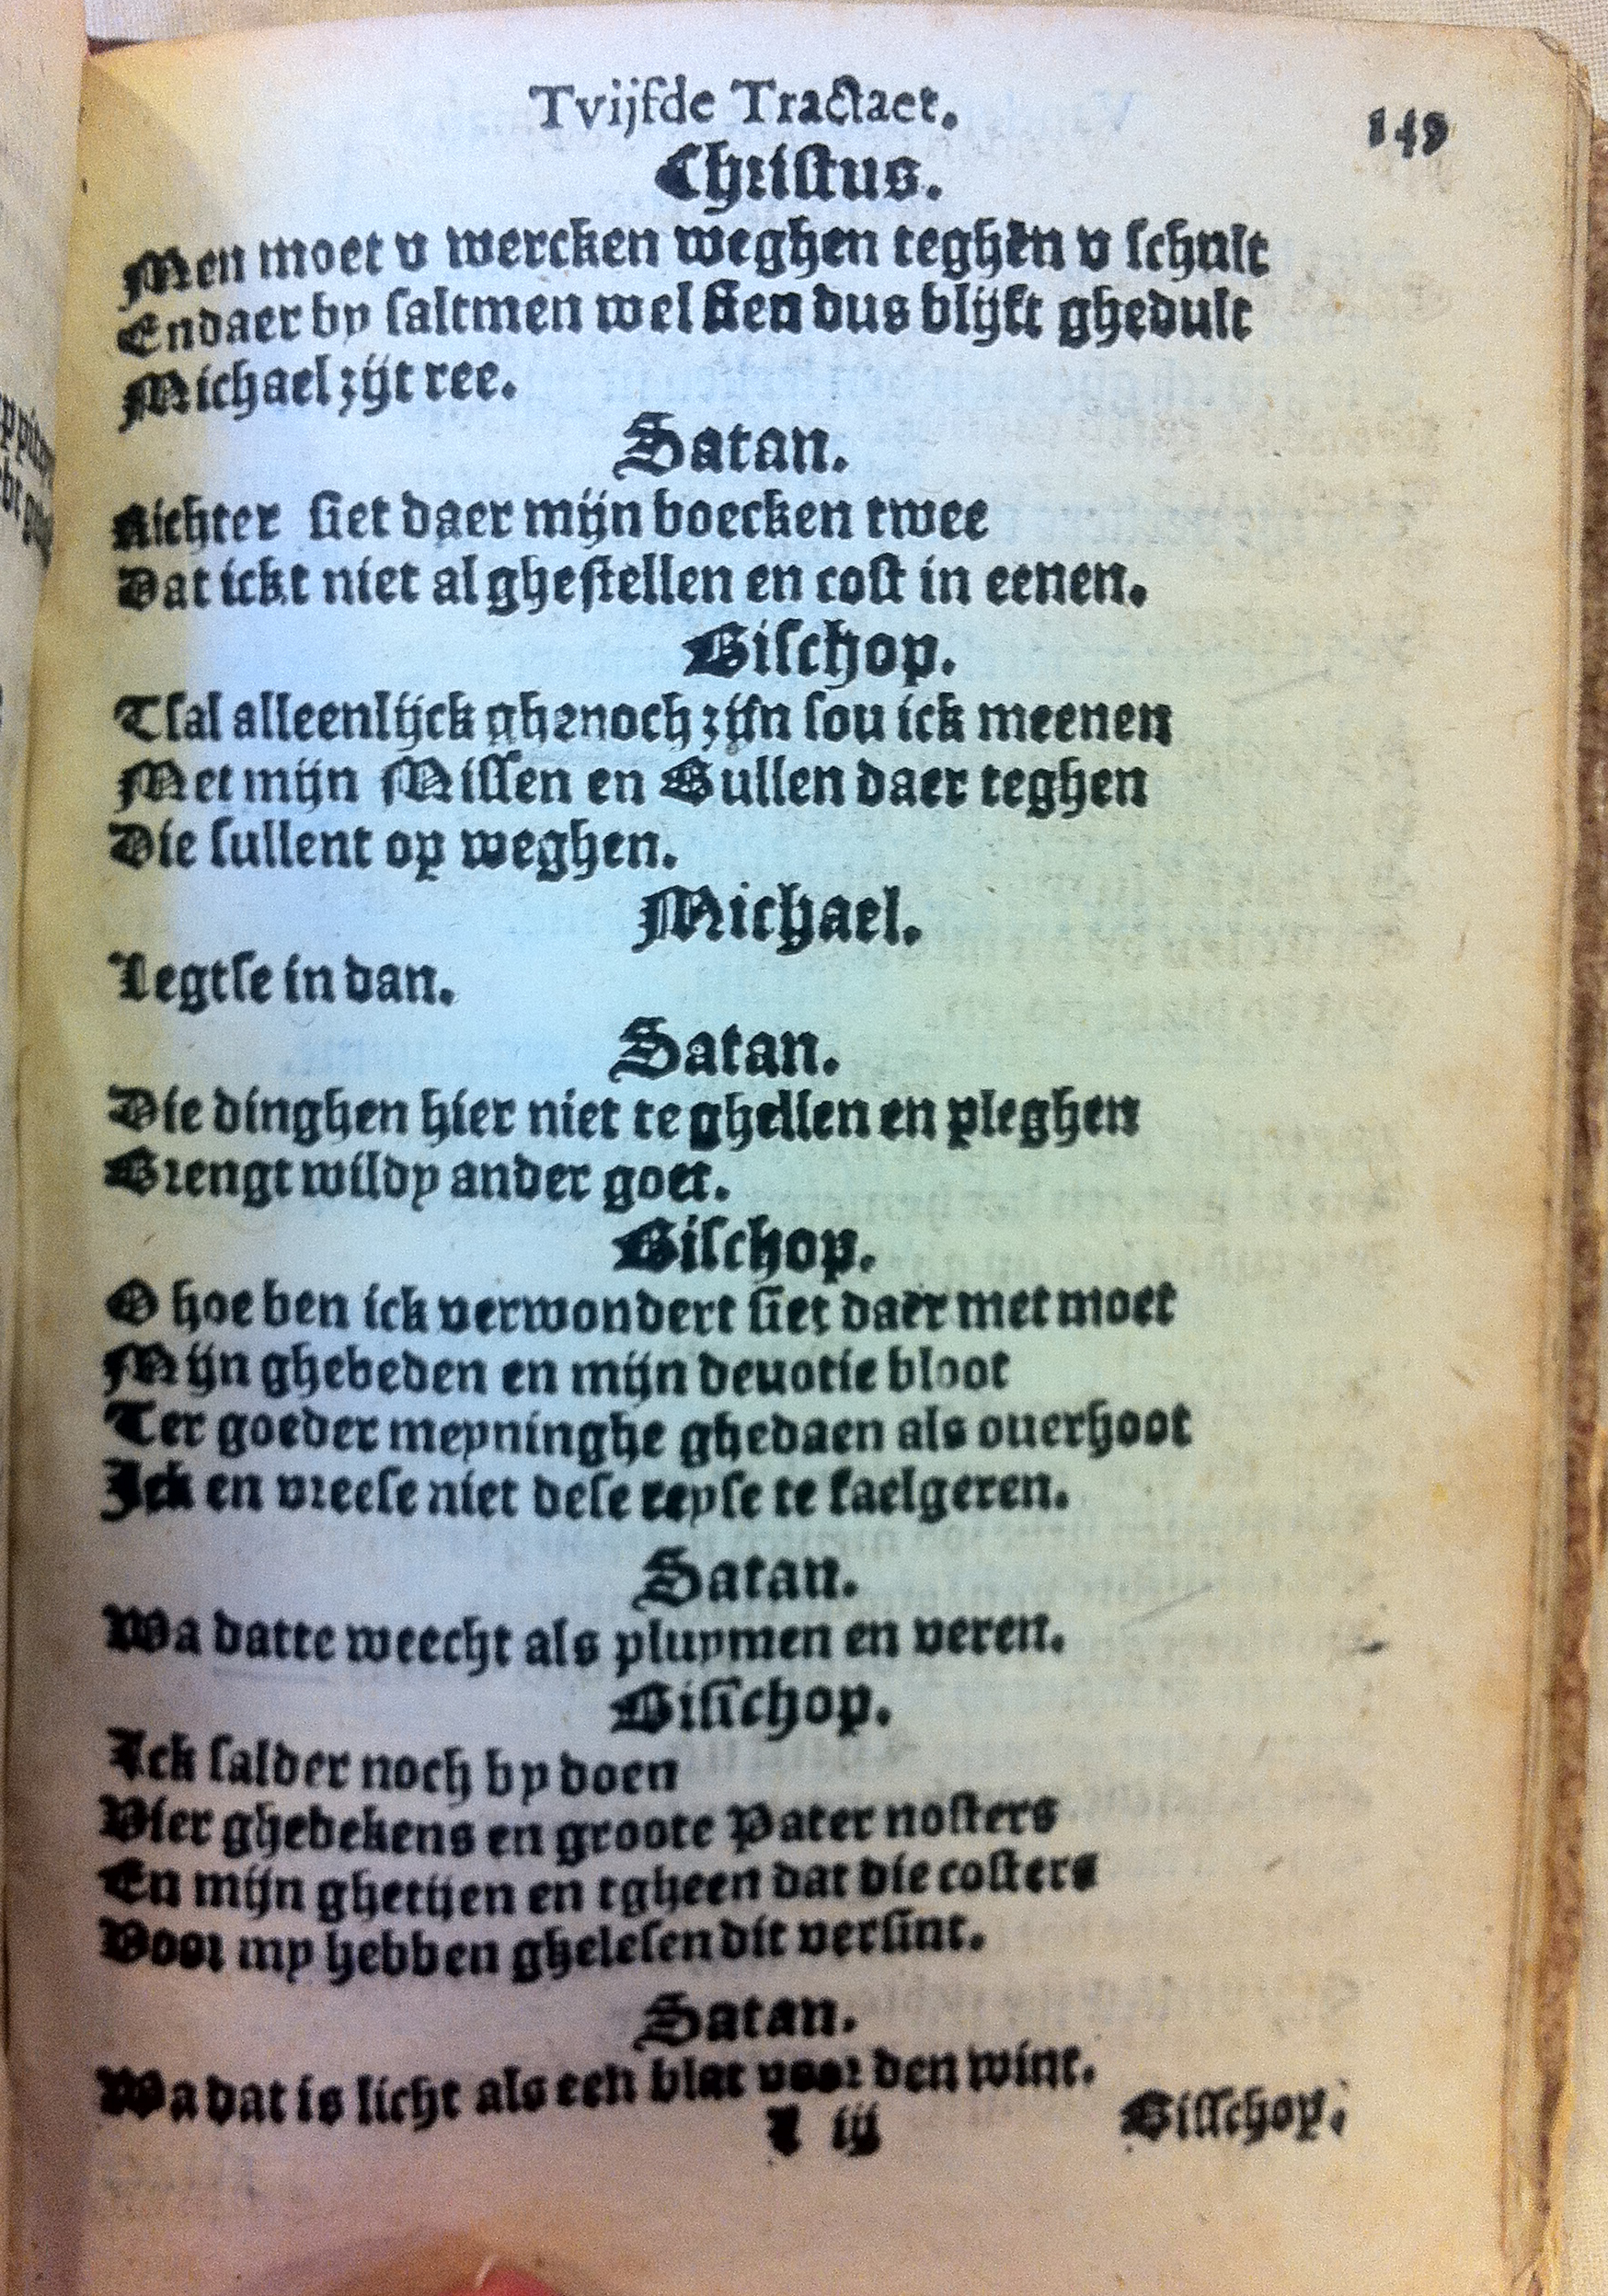 Tvijfde Tractaet.
149
Christus.
Men moet v wercken weghen teghen v schult
Endaer by saltmen wel sien dus blijft ghedult
Michael zijt ree.
Satan.
Richter siet daer mijn boecken twee
Dat ickt niet al ghestellen en cost in eenen.
Bischop.
Tsal alleenlijck ghenoch zijn sou ick meenen
Met mijn Missen en Bullen daer teghen
Die sullent op weghen.
Michael.
Legtse in dan.
Satan.
Die dinghen hier niet te ghellen en pleghen
Brengt wildy ander goet.
Bischop.
O hoe ben ick verwondert siet daer met moet
Mijn ghebeden en mijn deuotie bloot
Ter goeder meyninghe ghedaen als ouerhoot
Ick en vreese niet dese reyse te faelgeren.
Satan.
Wa datte weecht als pluymen en veren.
Bisschop.
Ick salder noch by doen
Vier ghebekens en groote Pater nosters
En mijn ghetijen en tgheen dat die costers
Voor my hebben ghelesen dit versint.
Satan.
Wa dat is licht als een blat voor den wint.
T iij
Bisschop.